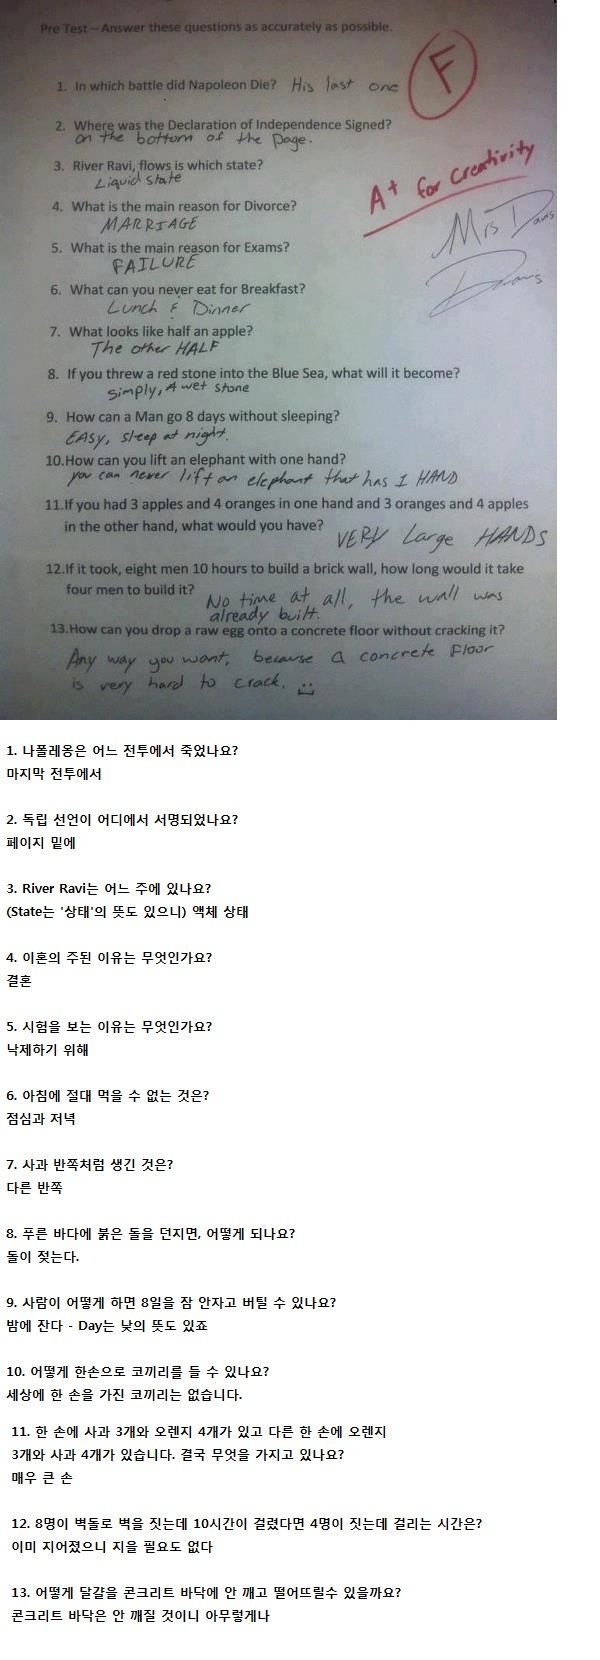 Pre Test – Answer these questions as accurately as possible.
F
1. In which battle did Napoleon Die? His last one
2. Where was the Declaration of Independence Signed?
on the bottom of the page.
A+ for Creativity
3. River Ravi, flows is which state?
Liquid state
Mrs Davis
4. What is the main reason for Divorce?
MARRIAGE
5. What is the main reason for Exams?
FAILURE
6. What can you never eat for Breakfast?
Lunch & Dinner
7. What looks like half an apple?
The other HALF
8. If you threw a red stone into the Blue Sea, what will it become?
simply, A wet stone
9. How can a Man go 8 days without sleeping?
EASY, sleep at night.
10.How can you lift an elephant with one hand?
you can never lift an elephant that has 1 HAND
11.If you had 3 apples and 4 oranges in one hand and 3 oranges and 4 apples
in the other hand, what would you have? VERY Large HANDS
12.If it took, eight men 10 hours to build a brick wall, how long would it take
four men to build it? No time at all, the wall was
already built.
13.How can you drop a raw egg onto a concrete floor without cracking it?
Any way you want, because a concrete Floor
is very hard to crack.
1. 나폴레옹은 어느 전투에서 죽었나요?
마지막 전투에서
2. 독립 선언이 어디에서 서명되었나요?
페이지 밑에
3. River Ravi는 어느 주에 있나요?
(State는 '상태'의 뜻도 있으니) 액체 상태
4. 이혼의 주된 이유는 무엇인가요?
결혼
5. 시험을 보는 이유는 무엇인가요?
낙제하기 위해
6. 아침에 절대 먹을 수 없는 것은?
점심과 저녁
7. 사과 반쪽처럼 생긴 것은?
다른 반쪽
8. 푸른 바다에 붉은 돌을 던지면, 어떻게 되나요?
돌이 젖는다.
9. 사람이 어떻게 하면 8일을 잠 안자고 버틸 수 있나요?
밤에 잔다 - Day는 낮의 뜻도 있죠
10. 어떻게 한손으로 코끼리를 들 수 있나요?
세상에 한 손을 가진 코끼리는 없습니다.
11. 한 손에 사과 3개와 오렌지 4개가 있고 다른 한 손에 오렌지
3개와 사과 4개가 있습니다. 결국 무엇을 가지고 있나요?
매우 큰 손
12. 8명이 벽돌로 벽을 짓는데 10시간이 걸렸다면 4명이 짓는데 걸리는 시간은?
이미 지어졌으니 지을 필요도 없다
13. 어떻게 달걀을 콘크리트 바닥에 안 깨고 떨어뜨릴수 있을까요?
콘크리트 바닥은 안 깨질 것이니 아무렇게나